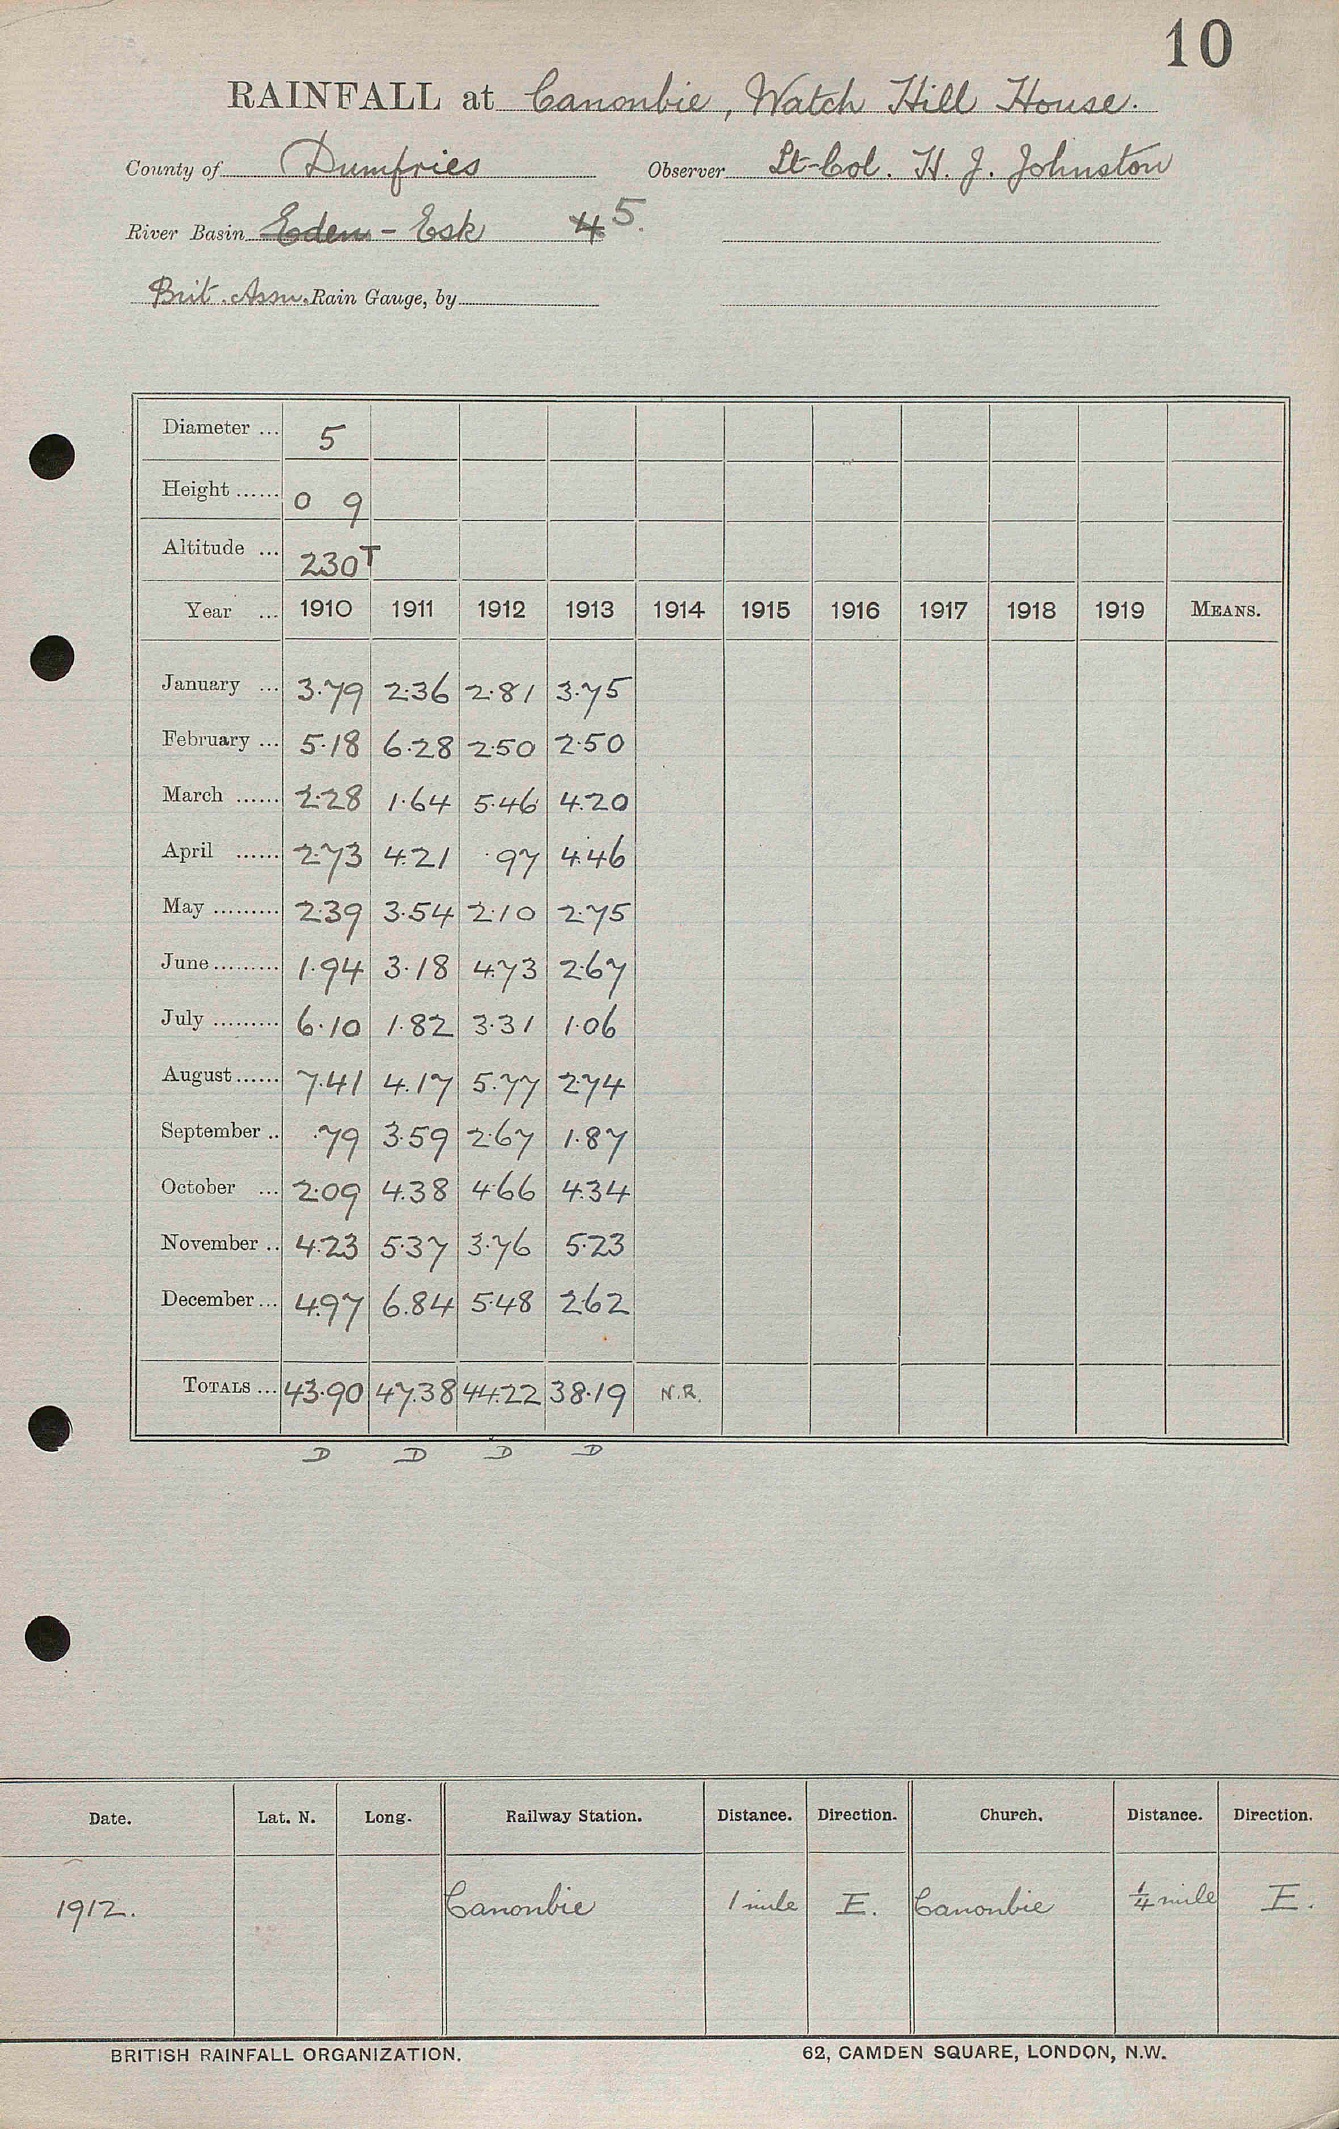 10
RAINFALL at Canonbie, Watch Hill House.
County of Dumfries Observer Lt-Col. H. J. Johnston
River Basin Eden - Esk 4 5.
Brit. Assn. Rain Gauge, by
Diameter ... 5
Height ...... 0 9
Altitude ... 230T
Year ... 1910 1911 1912 1913 1914 1915 1916 1917 1918 1919 MEANS.
January ... 3.79 2.36 2.81 3.75
February ... 5.18 6.28 2.50 2.50
March ...... 2.28 1.64 5.46 4.20
April ...... 2.73 4.21 .97 4.46
May ......... 2.39 3.54 2.10 2.75
June ......... 1.94 3.18 4.73 2.67
July ......... 6.10 1.82 3.31 1.06
August ...... 7.41 4.17 5.77 2.74
September .. .79 3.59 2.67 1.87
October ... 2.09 4.38 4.66 4.34
November .. 4.23 5.37 3.76 5.23
December ... 4.97 6.84 5.48 2.62
TOTALS ... 43.90 47.38 44.22 38.19 N.R.
D D D D
Date. Lat. N. Long. Railway Station. Distance. Direction. Church. Distance. Direction.
1912. Canonbie 1 mile E. Canonbie 1/4 mile E.
BRITISH RAINFALL ORGANIZATION. 62, CAMDEN SQUARE, LONDON, N.W.